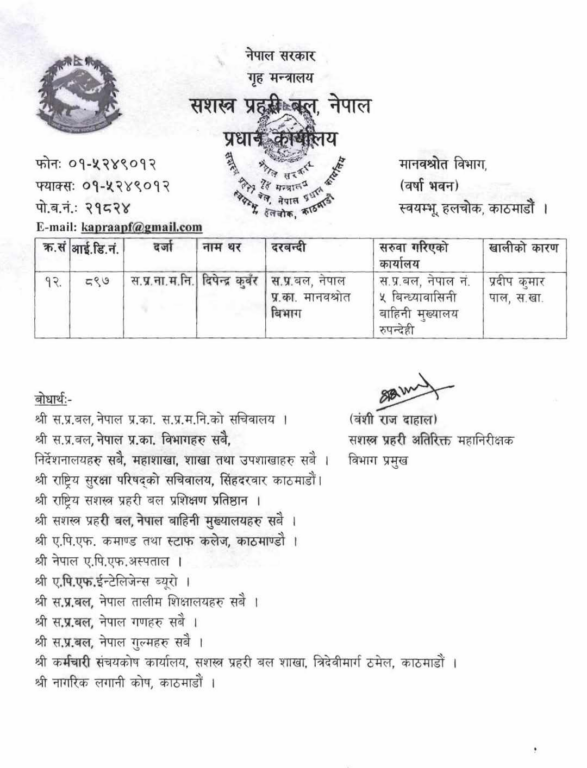 नेपाल सरकार
गृह मन्त्रालय
सशस्त्र प्रहरी बल, नेपाल
प्रधान कार्यालय
नेपाल सरकार
गृह मन्त्रालय
सशस्त्र प्रहरी बल, नेपाल प्रधान कार्यालय
स्वयम्भू, हलचोक, काठमाडौं
फोनः ०१-५२४९०१२
फ्याक्सः ०१-५२४९०१२
पो.ब.नं.: २१८२४
E-mail: kapraapf@gmail.com
मानवश्रोत विभाग,
(वर्षा भवन)
स्वयम्भू, हलचोक, काठमाडौं ।
क्र.सं आई.डि.नं. दर्जा नाम थर दरबन्दी सरुवा गरिएको कार्यालय खालीको कारण
१२. ८९७ स.प्र.ना.म.नि. दिपेन्द्र कुवँर स.प्र.बल, नेपाल प्र.का. मानवश्रोत बिभाग स.प्र.बल, नेपाल नं. ५ बिन्ध्यावासिनी बाहिनी मुख्यालय रुपन्देही प्रदीप कुमार पाल, स.खा.
बोधार्थः-
श्री स.प्र.बल, नेपाल प्र.का. स.प्र.म.नि.को सचिवालय ।
श्री स.प्र.बल, नेपाल प्र.का. विभागहरु सवै,
निर्देशनालयहरु सवै, महाशाखा, शाखा तथा उपशाखाहरु सवै ।
श्री राष्ट्रिय सुरक्षा परिषद्को सचिवालय, सिंहदरवार काठमाडौं।
श्री राष्ट्रिय सशस्त्र प्रहरी बल प्रशिक्षण प्रतिष्ठान ।
श्री सशस्त्र प्रहरी बल, नेपाल बाहिनी मुख्यालयहरु सवै ।
श्री ए.पि.एफ. कमाण्ड तथा स्टाफ कलेज, काठमाण्डौ ।
श्री नेपाल ए.पि.एफ.अस्पताल ।
श्री ए.पि.एफ.ईन्टेलिजेन्स व्यूरो ।
श्री स.प्र.बल, नेपाल तालीम शिक्षालयहरु सबै ।
श्री स.प्र.बल, नेपाल गणहरु सबै ।
श्री स.प्र.बल, नेपाल गुल्महरु सबै ।
श्री कर्मचारी संचयकोष कार्यालय, सशस्त्र प्रहरी बल शाखा, त्रिदेवीमार्ग ठमेल, काठमाडौं ।
श्री नागरिक लगानी कोष, काठमाडौं ।
(वंशी राज दाहाल)
सशस्त्र प्रहरी अतिरिक्त महानिरीक्षक
विभाग प्रमुख